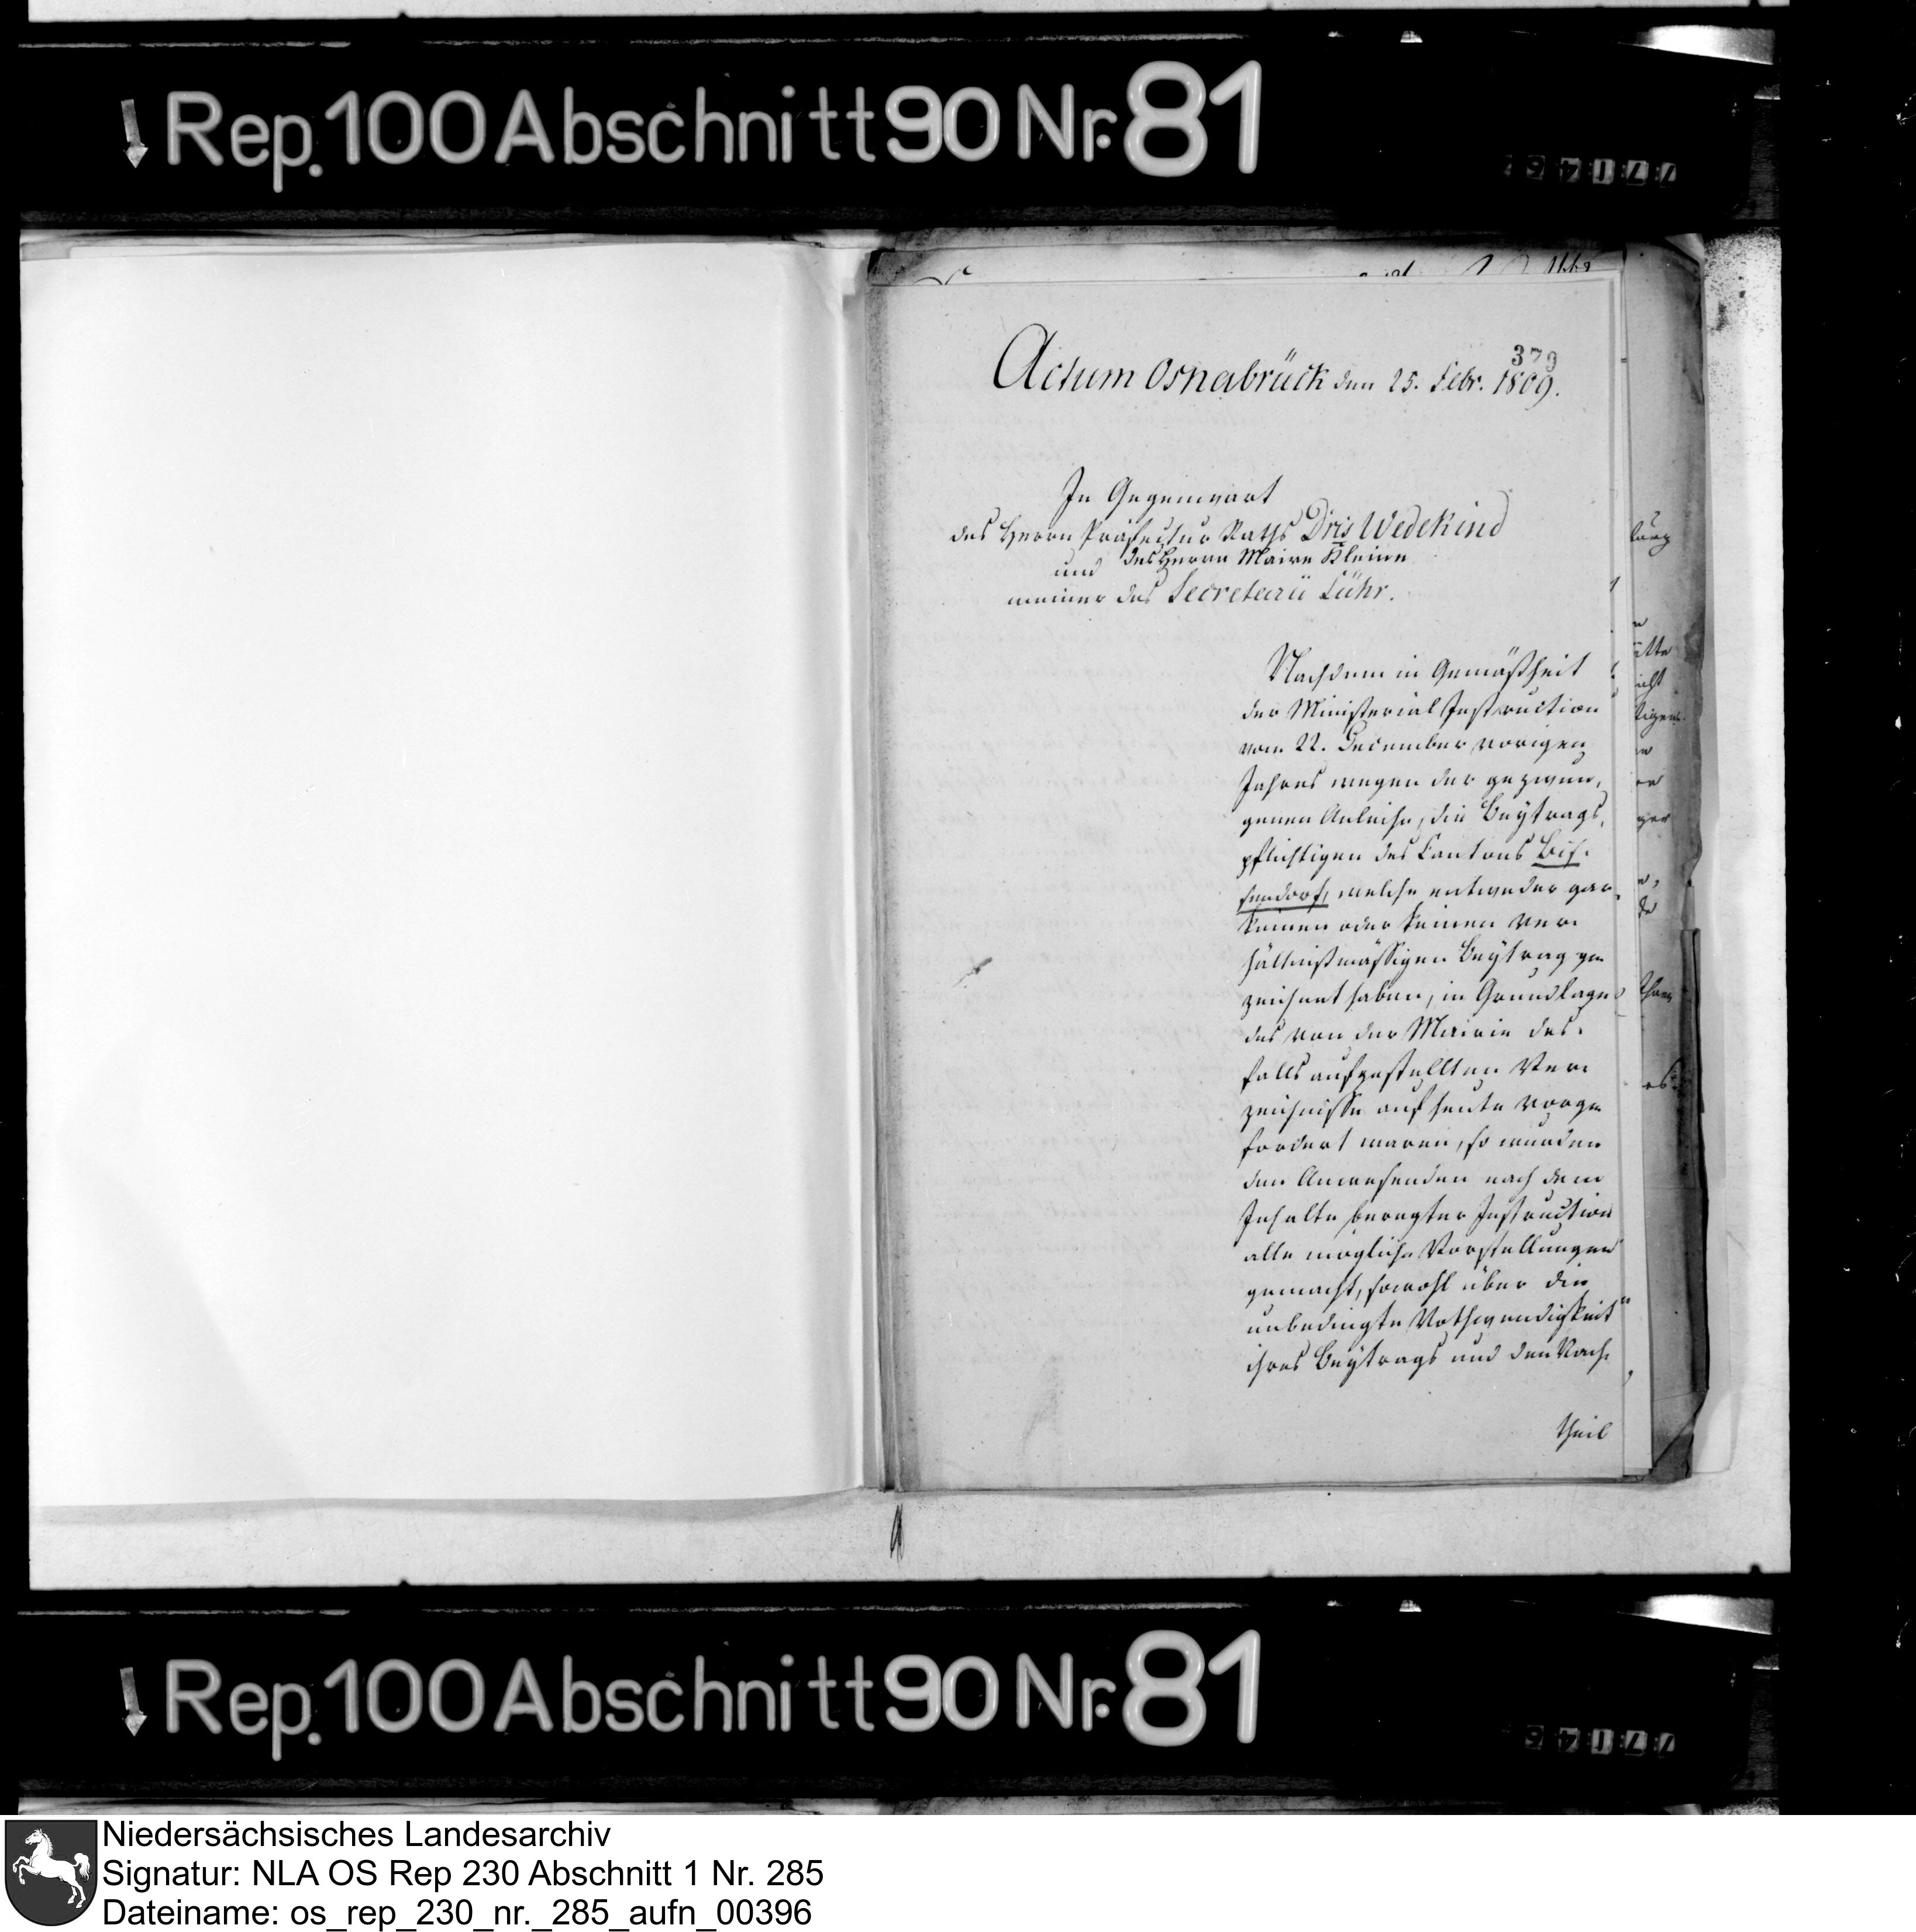 Rep. 100 Abschnitt 90 Nr. 81
379
Actum Osnabrück den 25. Febr. 1809.
In Gegenwart
des Herrn Präfectur Raths Dris Wedekind
und des Herrn Maire Kleine
meiner des Secretarii Lühr.
Nachdem in Gemäßheit
der Ministerial Instruction
vom 22. December vorigen
Jahres wegen der gezwun,
genen Anleihe, die Beytrags,
pflichtigen des Cantons Bis-
sendorf, welche entweder gar
keinen oder keinen ver-
hältnißmässigen Beytrag ge
zeichnet haben, in Grundlage
des von der Mairie des-
falls aufgestellten Ver-
zeichnisse auf heute vorge
fordert waren, so wurden
den Anwesenden nach dem
Inhalte beregter Instruction
alle mögliche Vorstellungen
gemacht, sowohl über die
unbedingte Nothwendigkeit
ihres Beytrags und den Nach-
theil
Rep. 100 Abschnitt 90 Nr. 81
Niedersächsisches Landesarchiv
Signatur: NLA OS Rep 230 Abschnitt 1 Nr. 285
Dateiname: os_rep_230_nr._285_aufn_00396